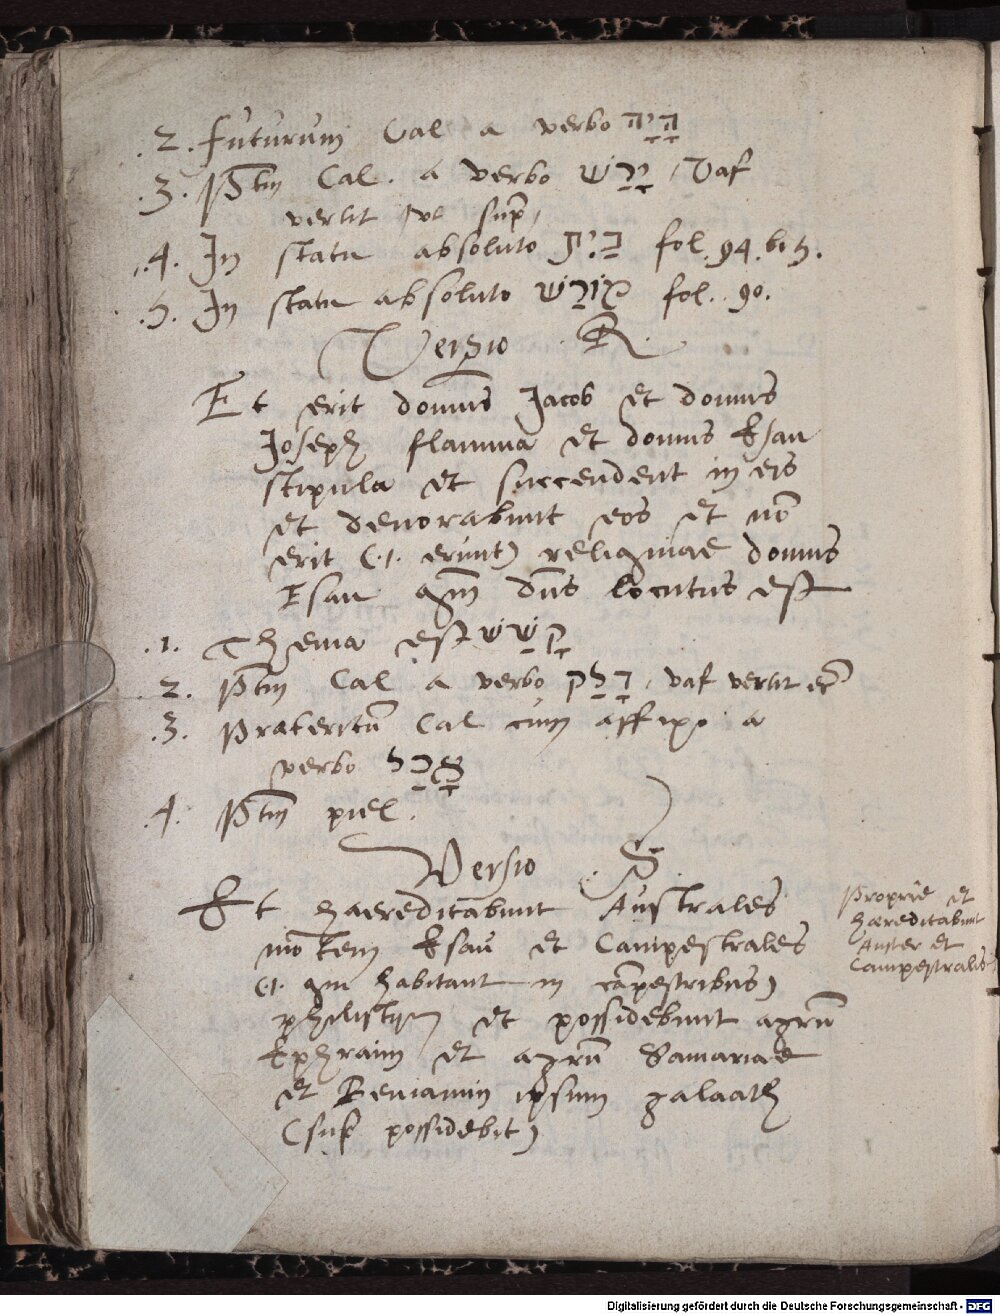 .2. Futurum Cal a verbo הָיָה
.3. Ptm̄ Cal. a verbo יָרַשׁ, Vaf
vertit, vt sup̄,
.4. In statu absoluto בַּיִת fol. 94. b. 5.
.5. In statu absoluto מוֹרָשׁ fol. 90.
Versio R.
Et erit domus Jacob et domus
Joseph flamma et domus Esau
stipula et succendent in eis
et devorabunt eos et nō
erit (.i. erunt) reliquiae domus
Esau qm̄ dn̄s locutus est
.1. Thema est קָשַׁשׁ
.2. Ptm̄ Cal a verbo דָּלַק, vaf vertit
.3. Praeteritū Cal cum affixo a
verbo אָכַל
.4. Ptm̄ piel.
Versio S.
Et haereditabunt Australes
mōtem Esau et Campestrales
(.i. qui habitant in cāpestribus)
philistijm et possidebunt agrū
Ephraim et agrū Samariae
et Beniamin ipsum galaath
(sup possidebit)
Proprie et
haereditabunt
Auster et
Campestralis
Digitalisierung gefördert durch die Deutsche Forschungsgemeinschaft - DFG